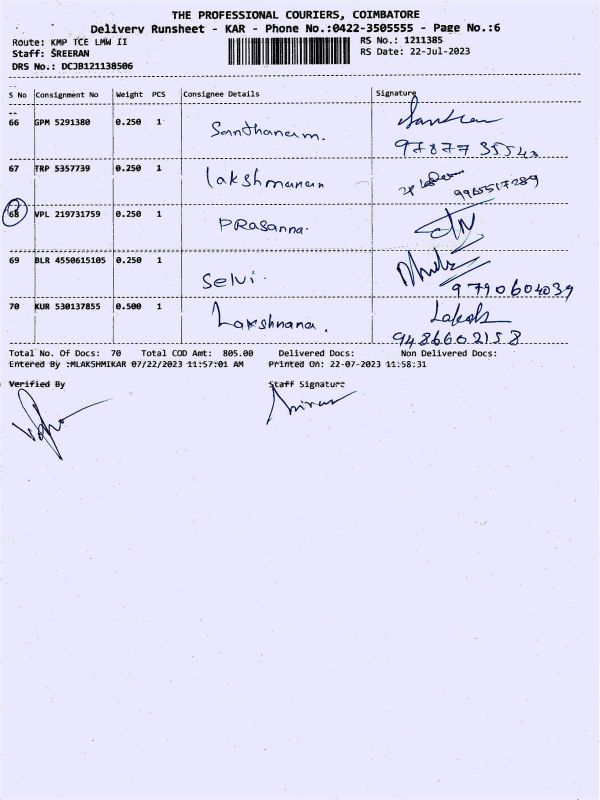 THE PROFESSIONAL COURIERS, COIMBATORE
Delivery Runsheet - KAR - Phone No.:0422-3505555 - Page No.:6
Route: KMP TCE LMW II
RS No.: 1211385
Staff: SREERAN
RS Date: 22-Jul-2023
DRS No.: DCJB121138506
S No Consignment No Weight PCS Consignee Details Signature
66 GPM 5291380 0.250 1 Santhanam.
97877 35543
67 TRP 5357739 0.250 1 Lakshmanan
9965517289
68 VPL 219731759 0.250 1 PRasanna.
69 BLR 4550615105 0.250 1 Selvi.
9790604039
70 KUR 530137855 0.500 1 Lakshnana.
9486602158
Total No. Of Docs: 70 Total COD Amt: 805.00 Delivered Docs: Non Delivered Docs:
Entered By :MLAKSHMIKAR 07/22/2023 11:57:01 AM Printed On: 22-07-2023 11:58:31
Verified By Staff Signature